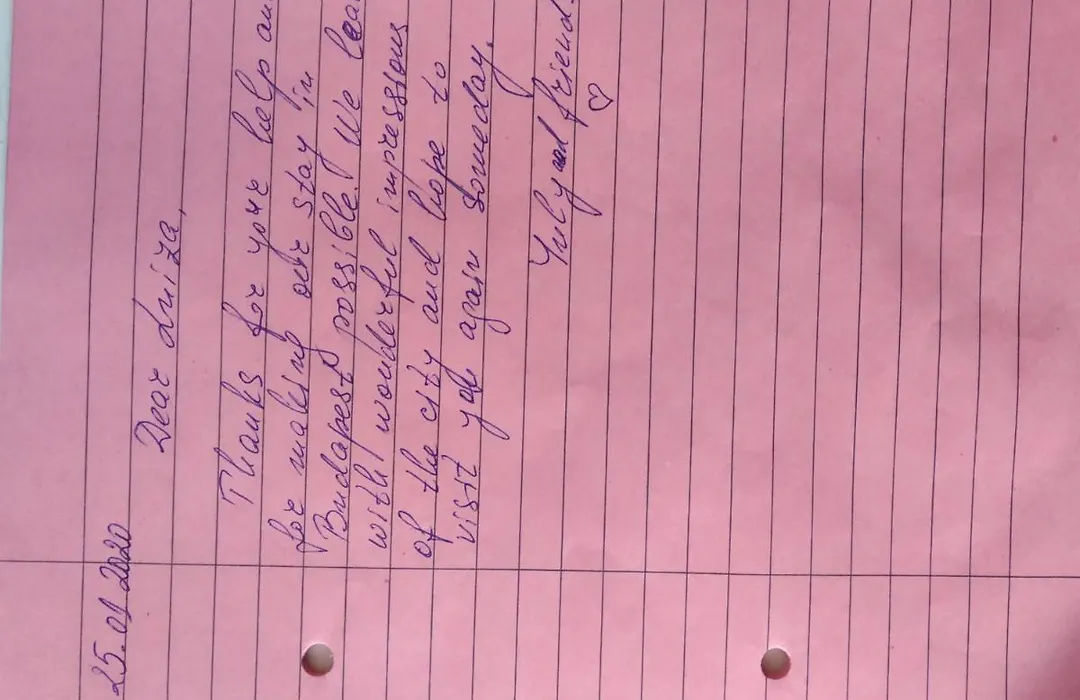 25.01.2020
Dear Luiza,
Thanks for your help an
for making our stay in
Budapest possible! We lea
with wonderful impressions
of the city and hope to
visit you again someday.
Yuly and friends
♡